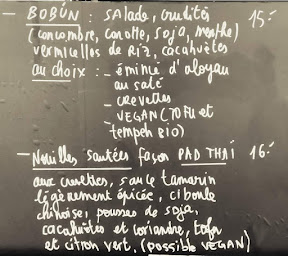 - BOBÚN : SALADE, CRUDITÉS 15.-
(CONCOMBRE, CAROTTE, SOJA, MENTHE)
VERMICELLES DE RIZ, CACAHUÈTES
AU CHOIX : - ÉMINCÉ d'aloyau
au saté
- CREVETTES
- VEGAN (TOFU et
tempeh BIO)
- Nouilles sautées façon PAD THAÏ 16.-
aux crevettes, sauce tamarin
légèrement épicée, ciboule
chinoise, pousses de soja,
cacahuètes et coriandre, tofu
et citron vert, (possible VEGAN)